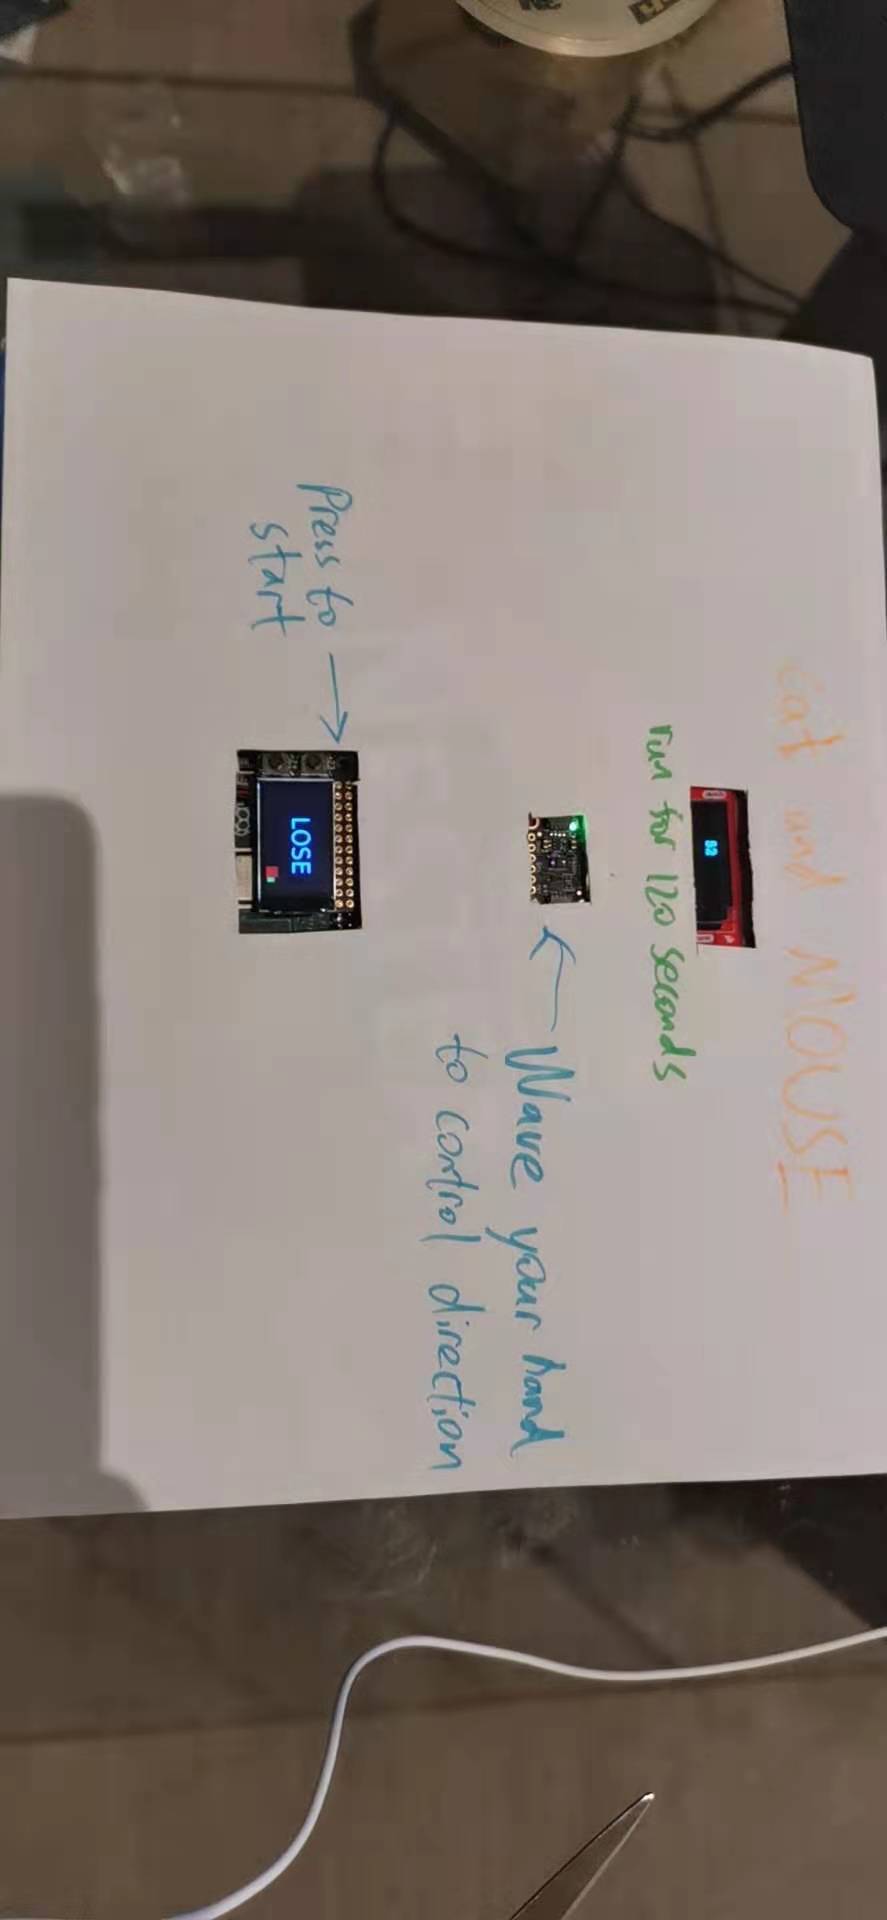 cat and MOUSE
run for 120 seconds
Wave your hand
to control direction
Press to
start
LOSE